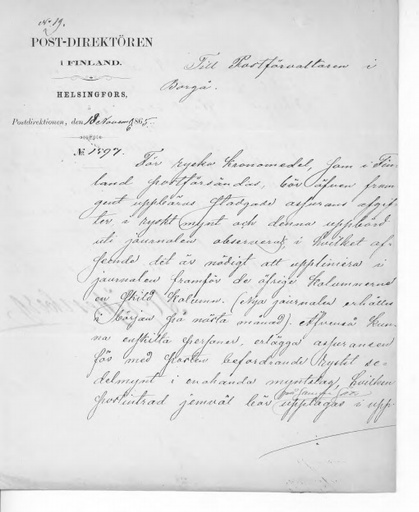 No 19.
POST-DIREKTÖREN
I FINLAND.
HELSINGFORS,
Postdirektionen, den 18 Novemb 1865.
№ 1597.
Till Postförvaltaren i
Borgå.
För ryska kronomedel, som i Fin
land postförsändas, bör äfven fram
gent uppbäras stadgade assurans afgif
ter i ryskt mynt och denna uppbörd
uti journalen observeras, i hvilket af
seende det är nödigt att uppliniera i
journalen framför de öfriga kolumnerna
en skild kolumn. (Nya journaler erhålles
i början på nästa månad). Afvenså kun
na enskilta personer, erlägga assuransen
för med posten befordrande ryskt se
delmynt i enahanda myntslag, hvilken
postintrad jemväl bör upptagas i upp